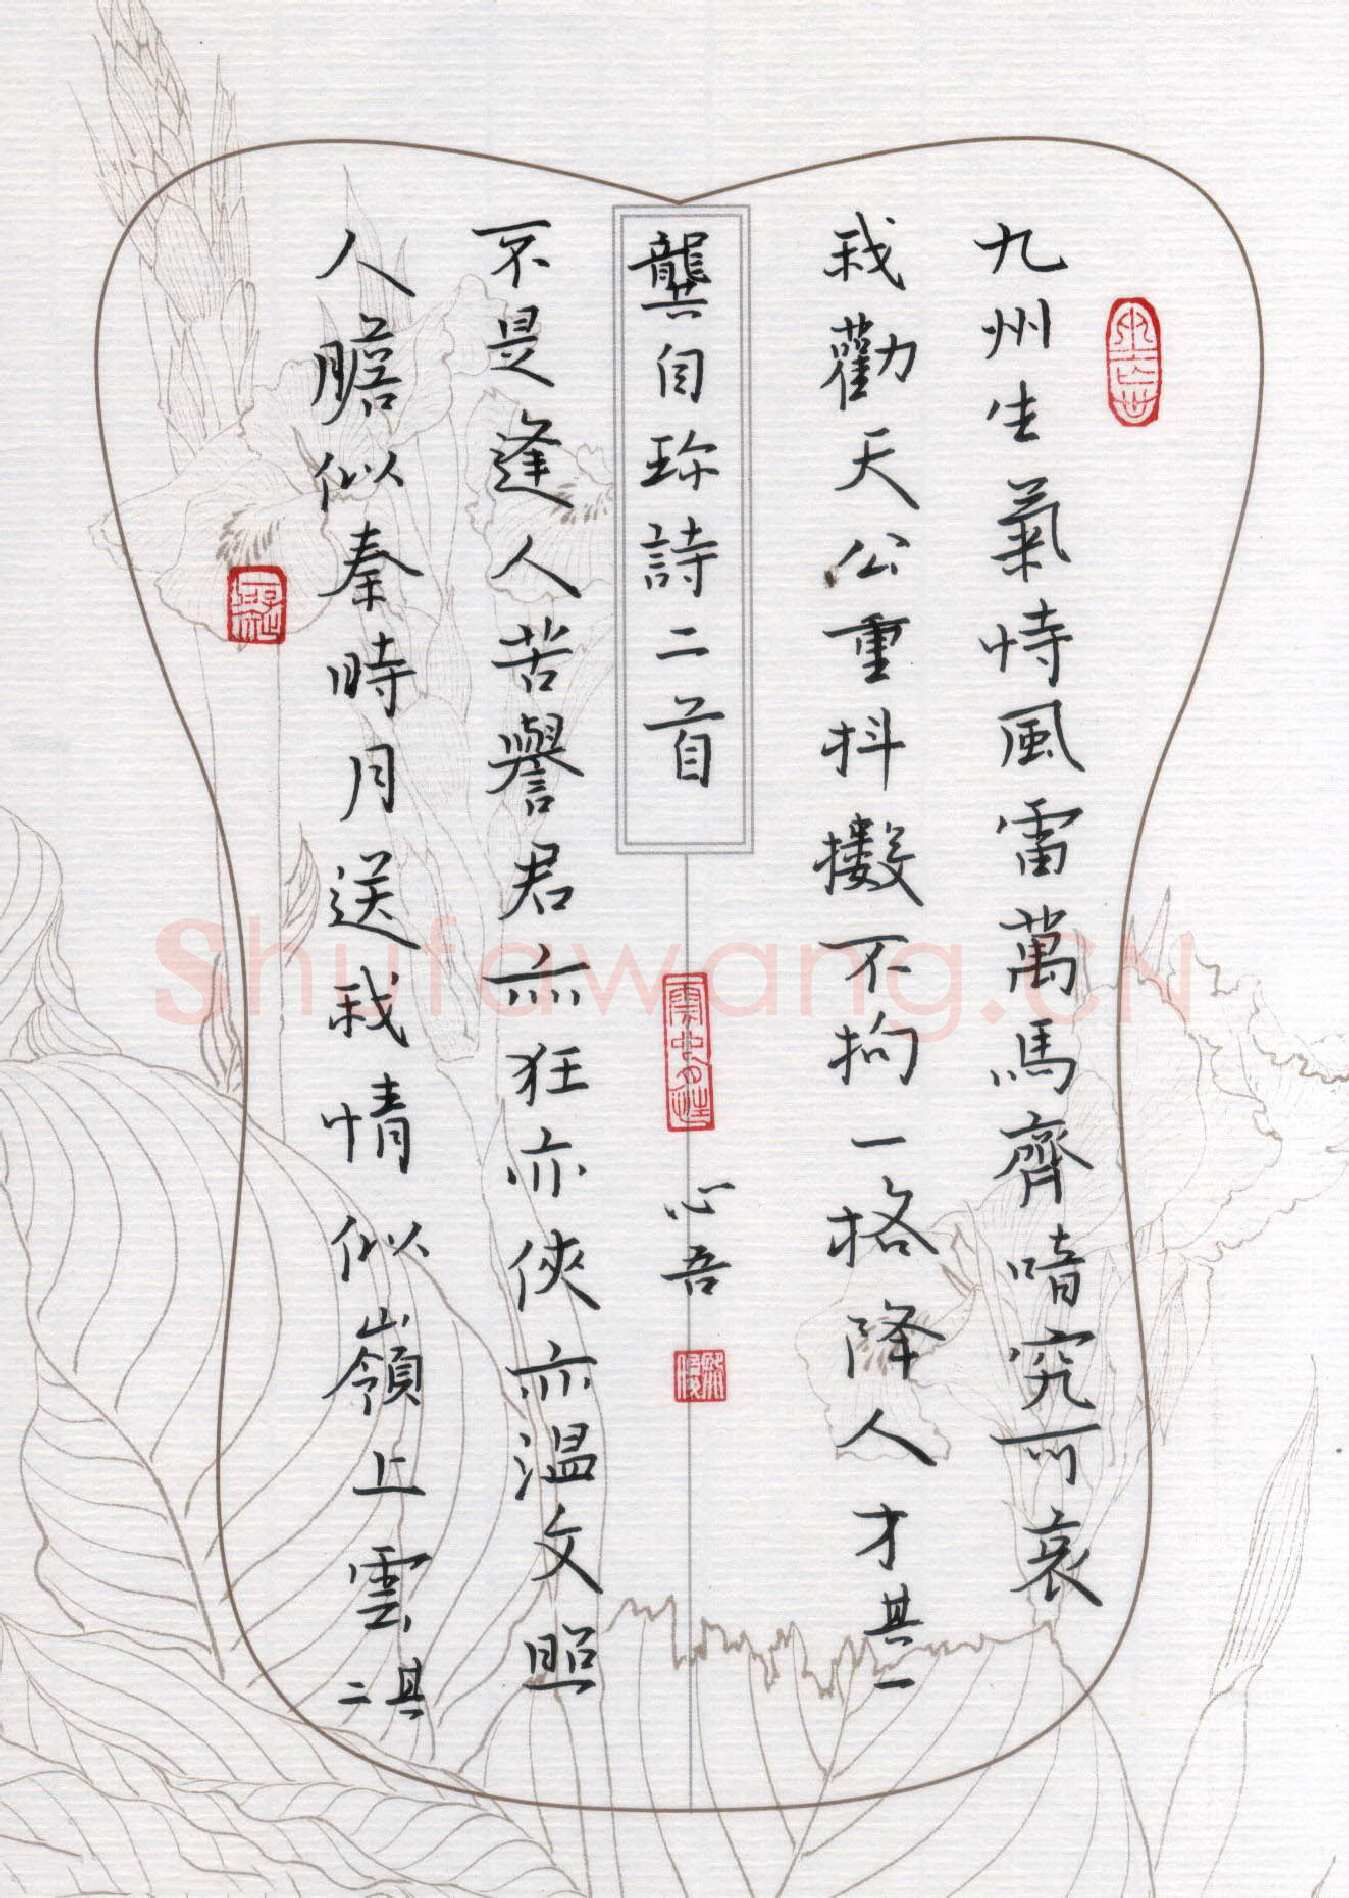 九州生氣恃風雷萬馬齊喑究可哀
我勸天公重抖擻不拘一格降人才其一
龔自珍詩二首
心吾
不是逢人苦譽君亦狂亦俠亦溫文照
人膽似秦時月送我情似嶺上雲其二
Shufawang.cn